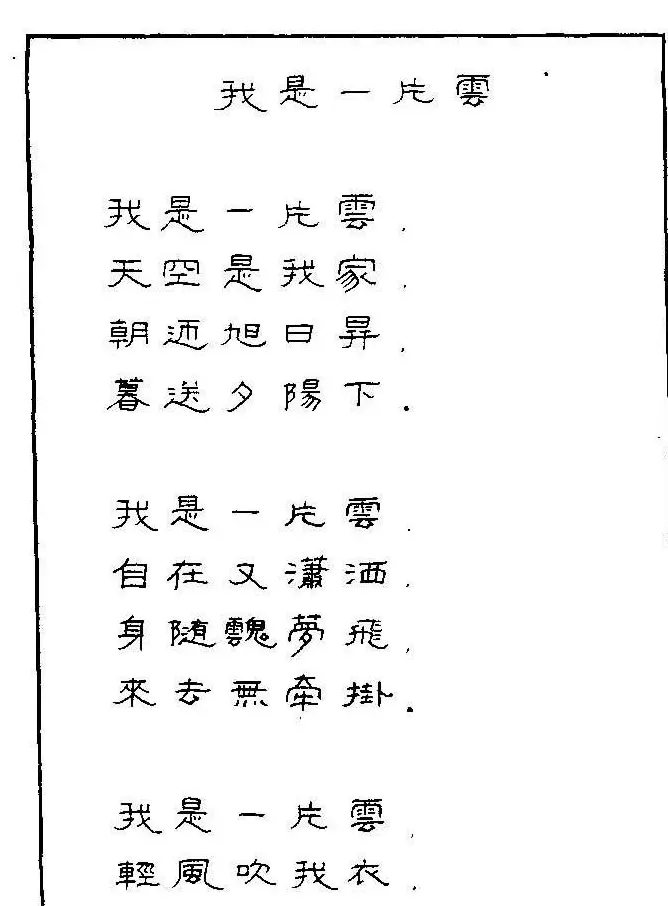 我是一片雲
我是一片雲，
天空是我家，
朝迊旭日昇，
暮送夕陽下．
我是一片雲，
自在又瀟洒，
身隨魂夢飛，
來去無牽掛．
我是一片雲，
輕風吹我衣，